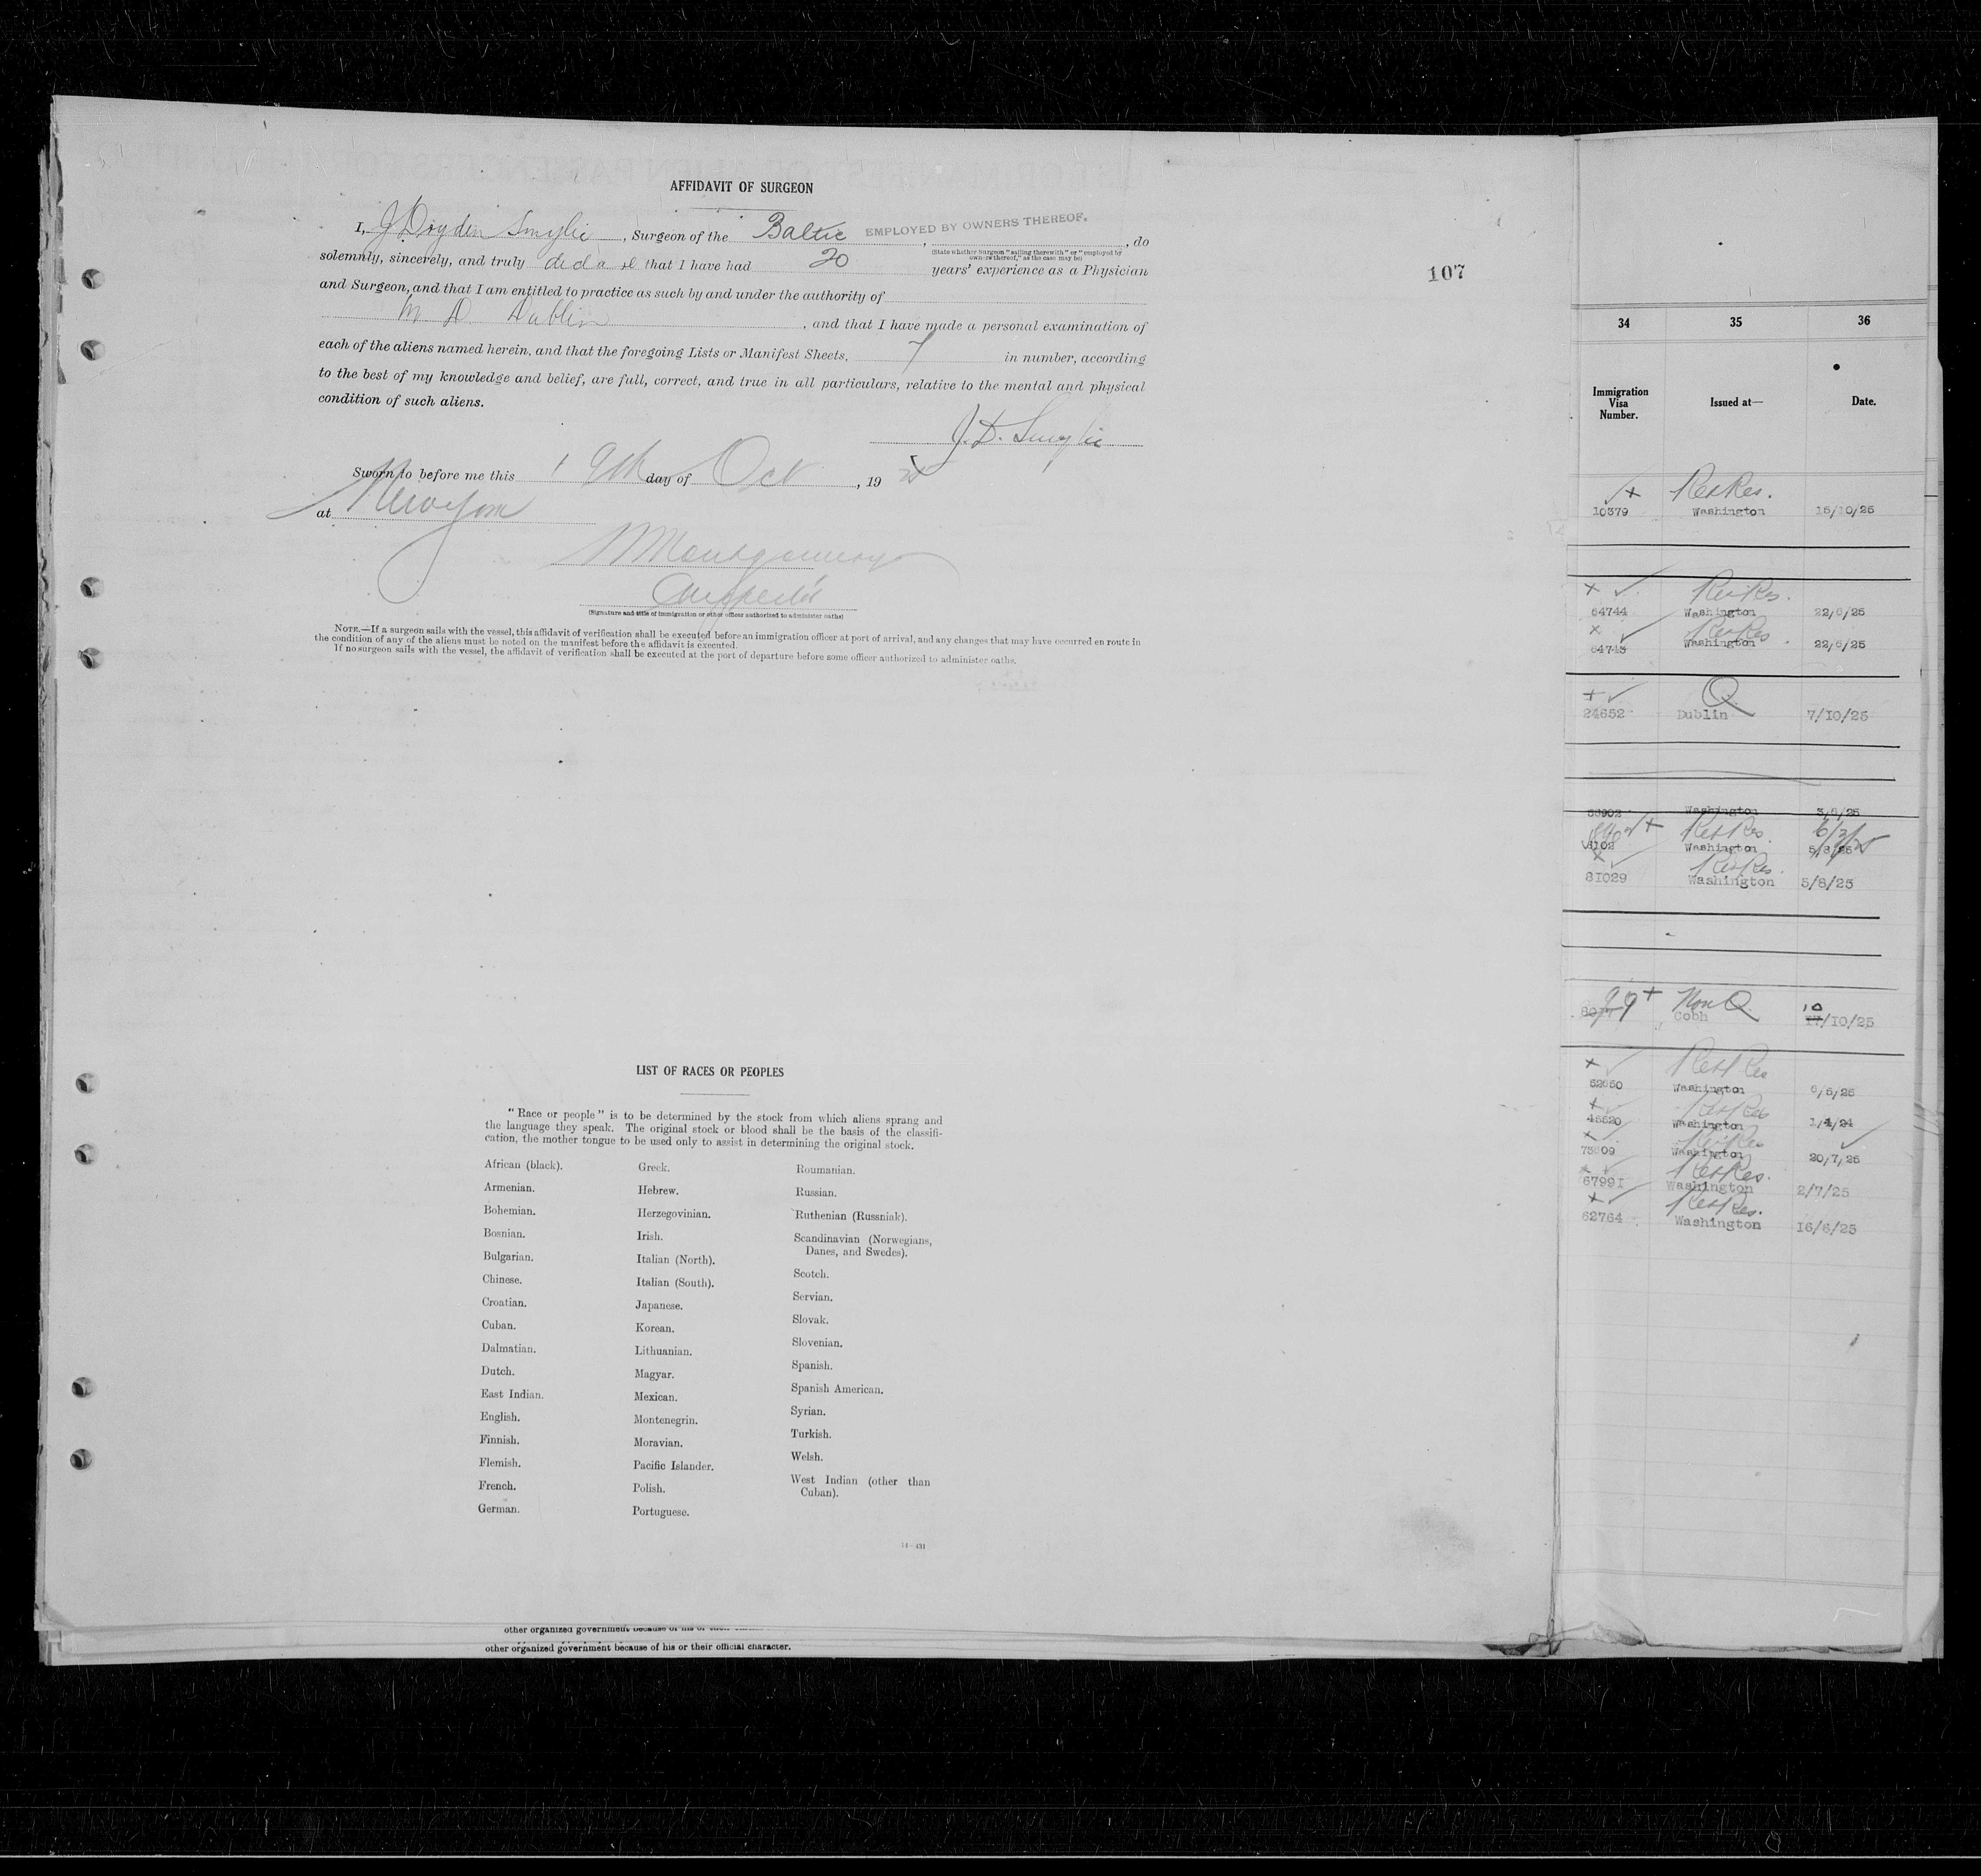 AFFIDAVIT OF SURGEON
I, J Dryden Smylie, Surgeon of the Baltic, EMPLOYED BY OWNERS THEREOF., do
(State whether Surgeon "sailing therewith" or "employed by
owners thereof," as the case may be)
solemnly, sincerely, and truly declare that I have had 20 years' experience as a Physician
and Surgeon, and that I am entitled to practice as such by and under the authority of
M D. Dublin, and that I have made a personal examination of
each of the aliens named herein, and that the foregoing Lists or Manifest Sheets, 7 in number, according
to the best of my knowledge and belief, are full, correct, and true in all particulars, relative to the mental and physical
condition of such aliens.
J. D. Smylie
Sworn to before me this 19th day of Oct, 1925
at New York
Montgomery
(Signature and title of immigration or other officer authorized to administer oaths)
NOTE.—If a surgeon sails with the vessel, this affidavit of verification shall be executed before an immigration officer at port of arrival, and any changes that may have occurred en route in
the condition of any of the aliens must be noted on the manifest before the affidavit is executed.
If no surgeon sails with the vessel, the affidavit of verification shall be executed at the port of departure before some officer authorized to administer oaths.
LIST OF RACES OR PEOPLES
"Race or people" is to be determined by the stock from which aliens sprang and
the language they speak. The original stock or blood shall be the basis of the classifi-
cation, the mother tongue to be used only to assist in determining the original stock.
African (black).
Armenian.
Bohemian.
Bosnian.
Bulgarian.
Chinese.
Croatian.
Cuban.
Dalmatian.
Dutch.
East Indian.
English.
Finnish.
Flemish.
French.
German.
Greek.
Hebrew.
Herzegovinian.
Irish.
Italian (North).
Italian (South).
Japanese.
Korean.
Lithuanian.
Magyar.
Mexican.
Montenegrin.
Moravian.
Pacific Islander.
Polish.
Portuguese.
Roumanian.
Russian.
Ruthenian (Russniak).
Scandinavian (Norwegians,
Danes, and Swedes).
Scotch.
Servian.
Slovak.
Slovenian.
Spanish.
Spanish American.
Syrian.
Turkish.
Welsh.
West Indian (other than
Cuban).
14—431
other organized government because of his or
other organized government because of his or their official character.
107
34 35 36
Immigration
Visa
Number.
Issued at—
Date.
Ret Res.
10379 Washington 15/10/25
Ret Res.
64744 Washington 22/6/25
Ret Res
64743 Washington 22/6/25
Q
24652 Dublin 7/10/25
Washington
Ret Res
Washington
Ret Res.
81029 Washington 5/8/25
Non Q
Cobh 10
17/10/25
Ret Res
Washington 6/5/25
Ret Res
45520 Washington 1/4/24
Ret Res
Washington 20/7/25
Ret Res.
67991 Washington 2/7/25
Ret Res.
62764 Washington 16/6/25